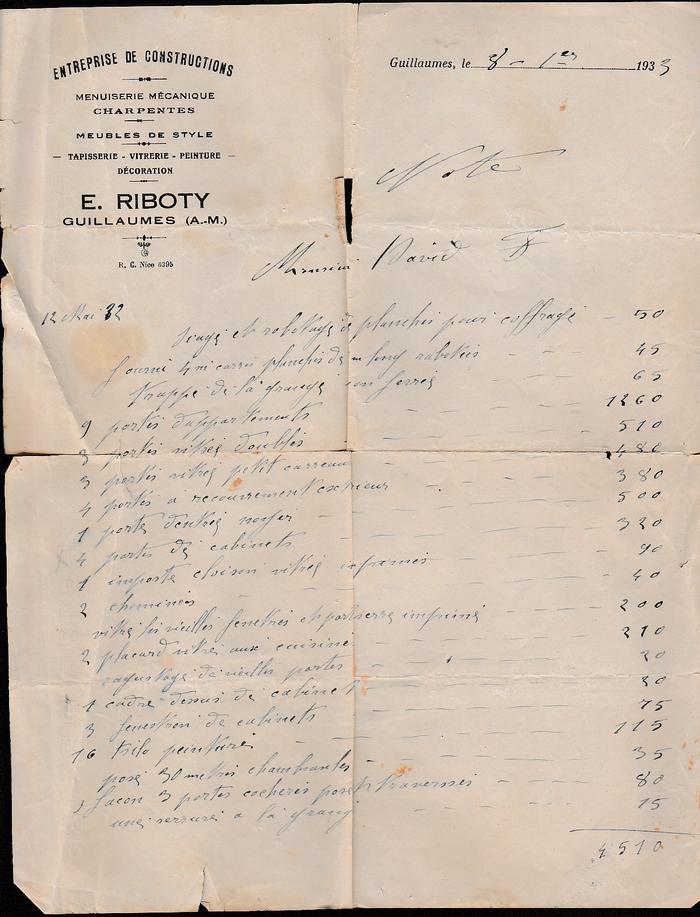 ENTREPRISE DE CONSTRUCTIONS
MENUISERIE MÉCANIQUE
CHARPENTES
MEUBLES DE STYLE
— TAPISSERIE - VITRERIE - PEINTURE —
DÉCORATION
E. RIBOTY
GUILLAUMES (A.-M.)
R. C. Nice 6395
Guillaumes, le 8 - 1er 1933
Note
Monsieur David F
12 Mai 32
siage et rabotage de planches pour coffrage — 50
fourni 4 m carré planches de long rabotés - - 45
trappe de la grange ferrée - - 65
9 portes d'appartements - - 1260
3 portes vitrés doubles - - 510
3 portes vitrés petit carreaux - - 480
4 portes a recouvrement exterieur - - 380
1 porte d'entrée noyer - - 500
4 portes de cabinets - - 320
1 imposte cloison vitrés imprimés - - 90
2 cheminées - - 40
vitre les vieilles fenetres et porte verre imprimé - - 200
2 placard vitrés aux cuisine - - 210
rajustage de vieilles portes - - 20
1 cadre dessus de cabinet - - 30
3 fenestron de cabinets - - 75
16 kilo peinture - - 115
pose 30 metres chambranles - - 35
façon 3 portes cocheres posé traverses - - 80
une serrure a la grange - - 15
4510